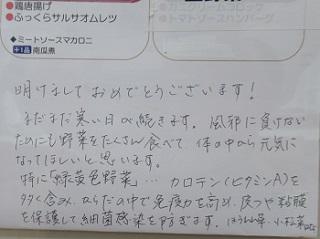 ●鶏唐揚げ
●ふっくらサルサオムレツ
◆ミートソースマカロニ
+1品 南瓜煮
●トマトソースハンバーグ
明けましておめでとうございます!
まだまだ寒い日が続きます。風邪に負けない
ためにも野菜をたくさん食べて 体の中から元気に
なってほしいと思います。
特に「緑黄色野菜」… カロテン(ビタミンA)を
多く含み、からだの中で免疫力を高め、皮フや粘膜
を保護して細菌感染を防ぎます。ほうれん草・小松菜